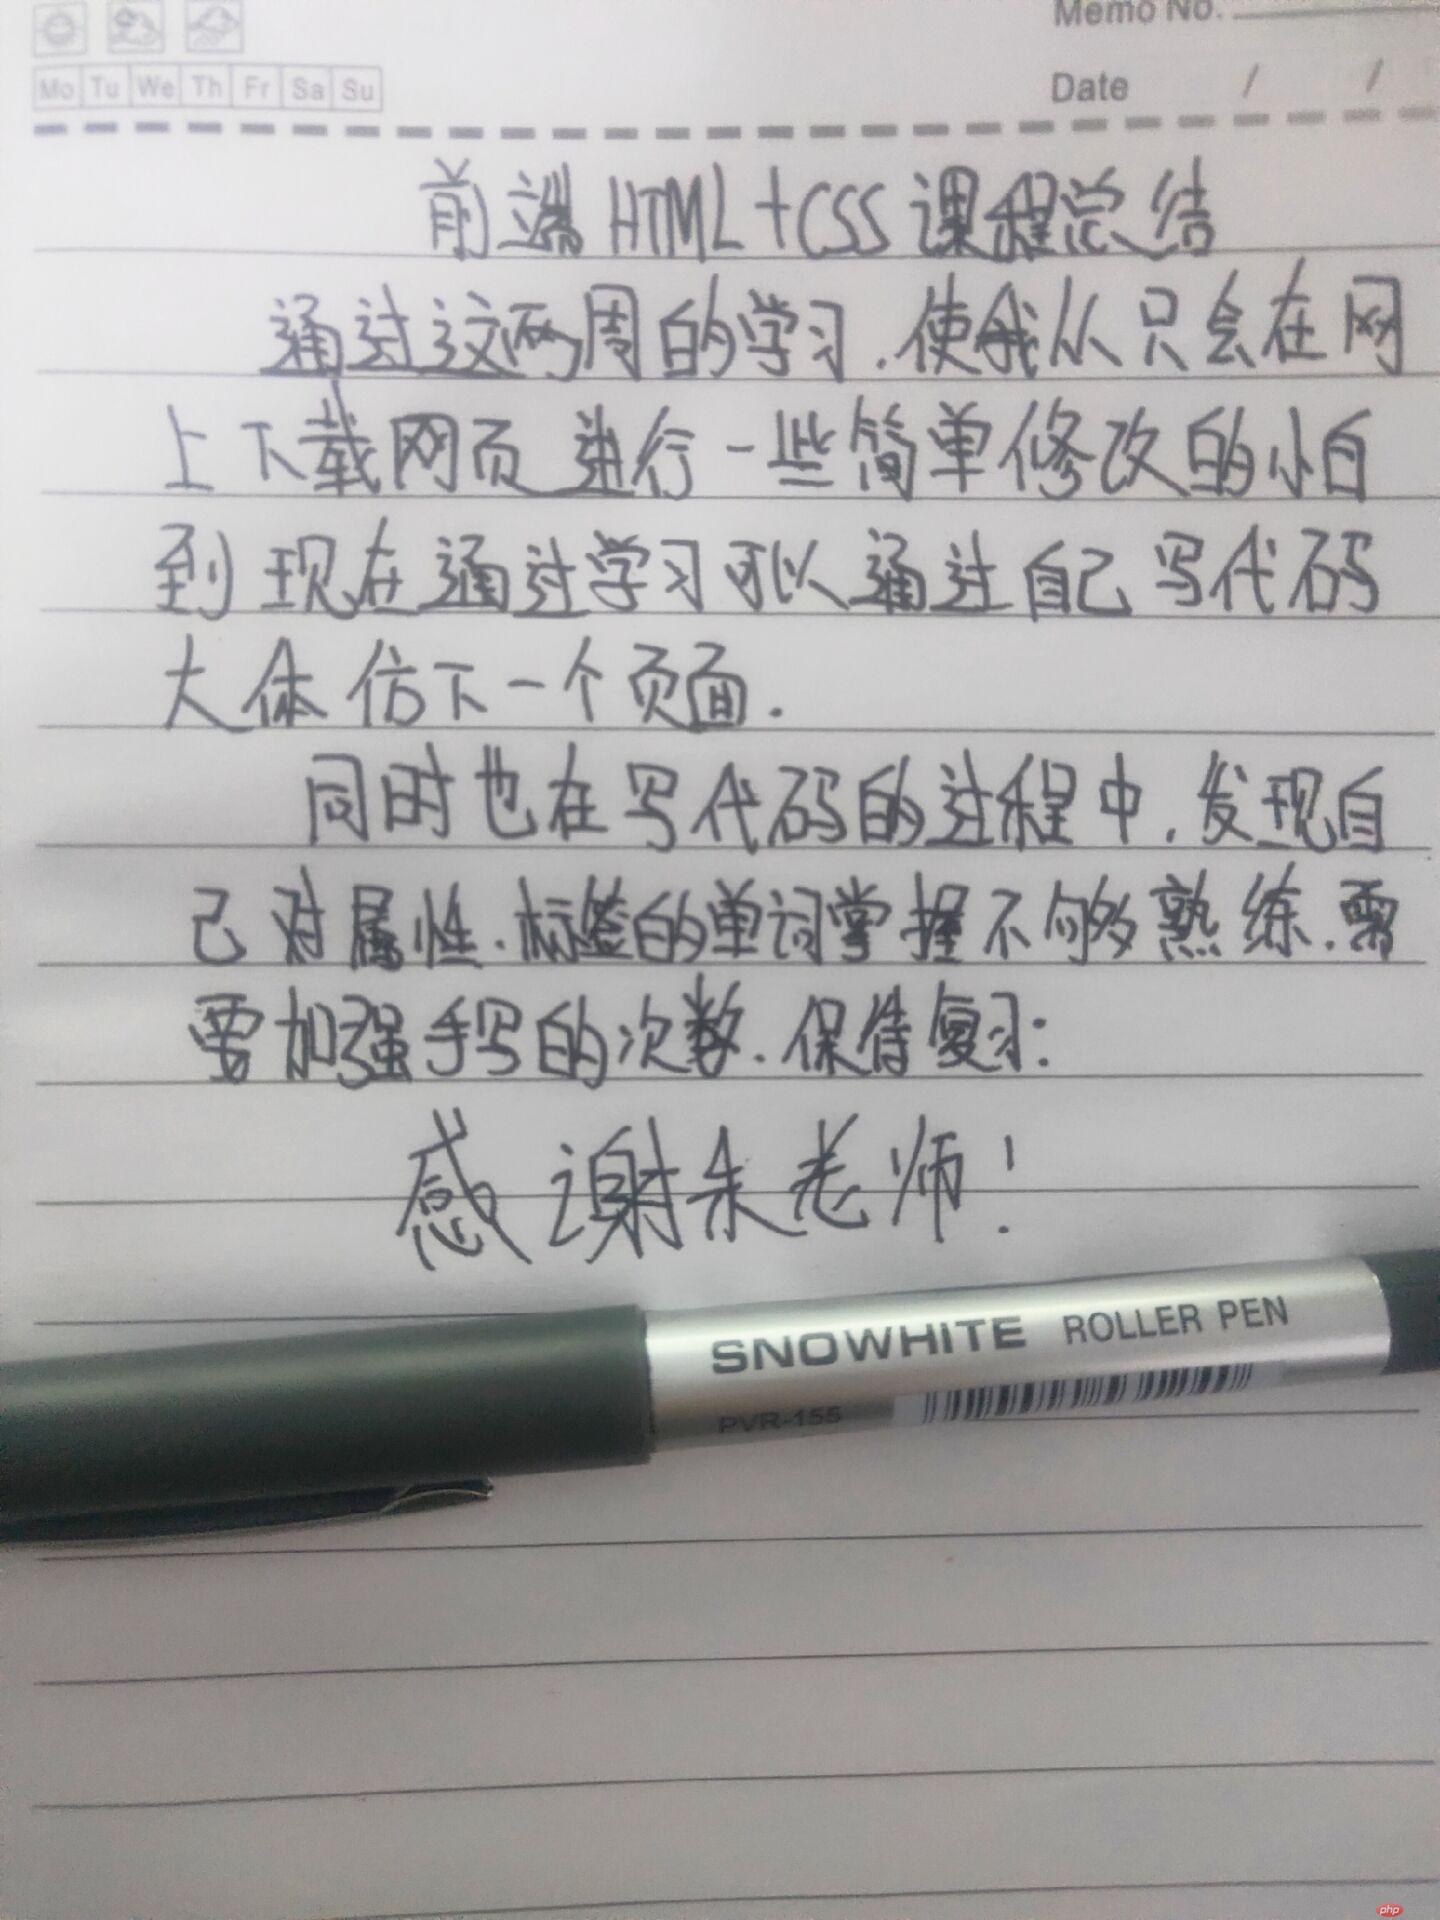 Memo No.
Mo Tu We Th Fr Sa Su
Date / /
前端HTML+CSS课程总结
通过这两周的学习.使我从只会在网
上下载网页进行一些简单修改的小白
到现在通过学习可以通过自己写代码
大体仿下一个页面.
同时也在写代码的过程中,发现自
己对属性.标签的单词掌握不够熟练.需
要加强手写的次数.保持复习:
感谢朱老师!
SNOWHITE ROLLER PEN
PVR-155
php